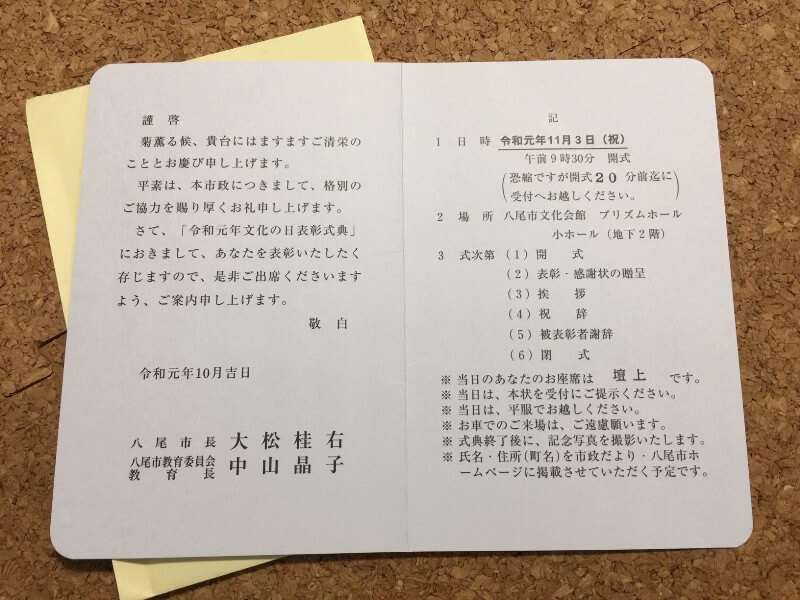 謹啓
菊薫る候、貴台にはますますご清栄の
こととお慶び申し上げます。
平素は、本市政につきまして、格別の
ご協力を賜り厚くお礼申し上げます。
さて、「令和元年文化の日表彰式典」
におきまして、あなたを表彰いたしたく
存じますので、是非ご出席くださいます
よう、ご案内申し上げます。
敬白
令和元年10月吉日
八尾市長 大松桂右
八尾市教育委員会
教育長 中山晶子
記
1 日時 令和元年11月3日(祝)
午前9時30分 開式
(恐縮ですが開式20分前迄に
受付へお越しください。)
2 場所 八尾市文化会館 プリズムホール
小ホール(地下2階)
3 式次第 (1)開式
(2)表彰・感謝状の贈呈
(3)挨拶
(4)祝辞
(5)被表彰者謝辞
(6)閉式
※ 当日のあなたのお座席は 壇上 です。
※ 当日は、本状を受付にご提示ください。
※ 当日は、平服でお越しください。
※ お車でのご来場は、ご遠慮願います。
※ 式典終了後に、記念写真を撮影いたします。
※ 氏名・住所(町名)を市政だより・八尾市ホ
ームページに掲載させていただく予定です。